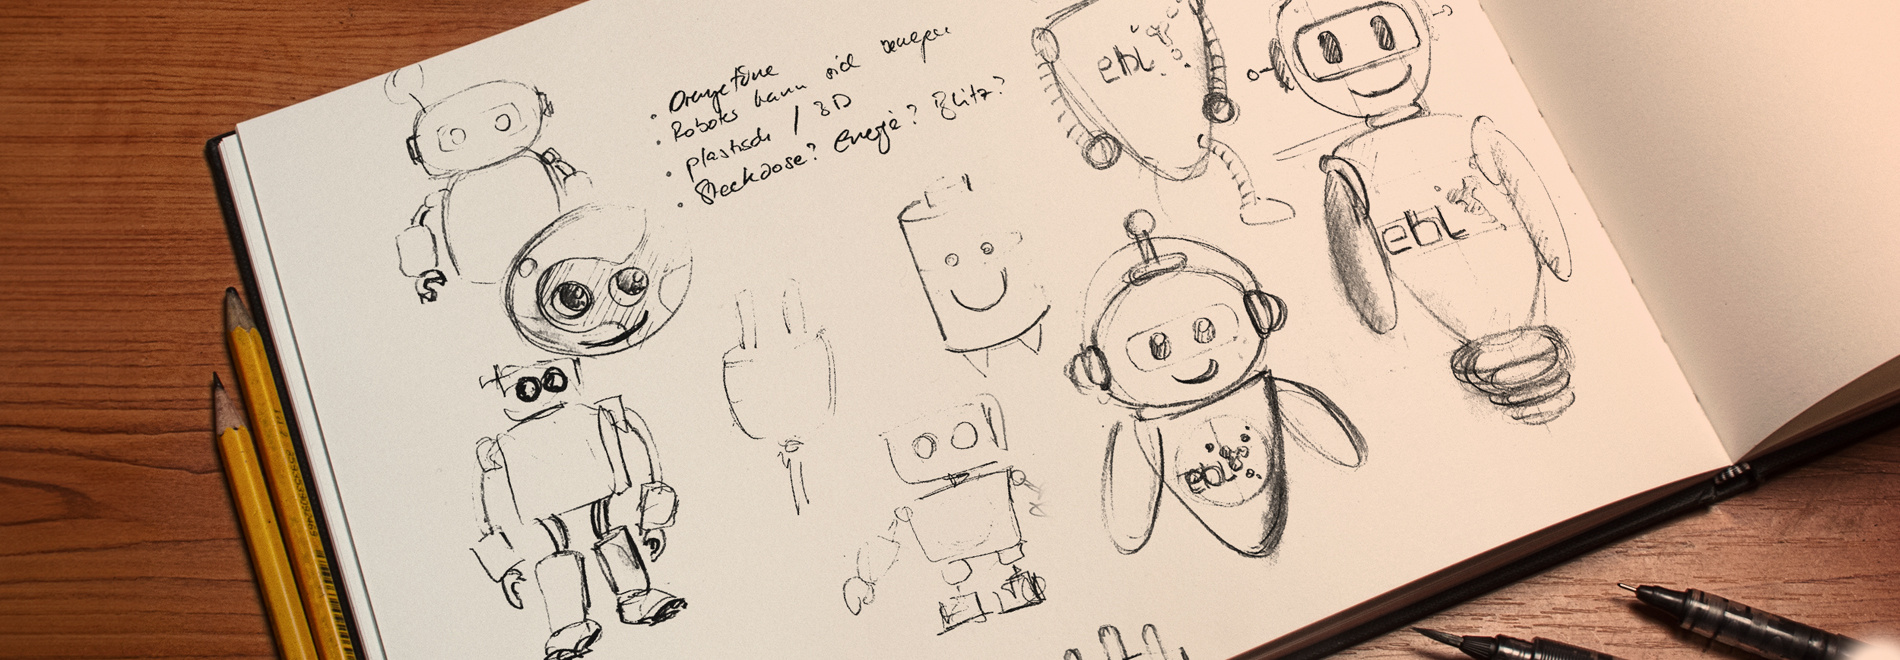 Orangetöne
Roboter kann sich bewegen
plastisch / 3D
Steckdose? Energie? Blitz?
ebl
ebl
ebl